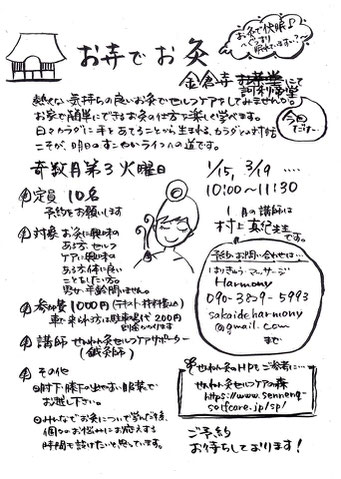 お灸で快眠♪
ぐっすり
眠れていますか…?
お寺でお灸
金倉寺
訶利帝堂
にて
熱くない気持ちの良いお灸でセルフケアをしてみませんか。
お家で簡単にできるお灸の仕方が楽しく学べます。
日々カラダに手をあてることから生まれる、カラダとの対話
こそが、明日のすこやかライフへの道です。
今回
だけ…
奇数月第3火曜日
1/15, 3/19 …
10:00〜11:30
定員 10名
予約をお願いします
対象 お灸に興味の
ある方、セルフ
ケアに興味の
ある方、体に良い
ことをしたい方。
男女・年齢問いません。
1月の講師は
村上真紀先生
です。
予約・お問い合わせは…
Harmony
090-3829-5993
sakaideharmony
@gmail.com
まで
参加費 1000円(テキスト・材料費込)
車で来られる方は駐車場代200円
別途かかります
講師 せんねん灸セルフケアサポーター
(鍼灸師)
その他
①肘下・膝下の出やすい服装で
お越し下さい。
②みんなでお灸について学んだ後、
個々のお悩みにお応えする
時間も設けたいと思っています。
せんねん灸のHPもご参考に…
せんねん灸セルフケアの森
https://www.sennenq-
selfcare.jp/sp/
ご予約
お待ちしております!